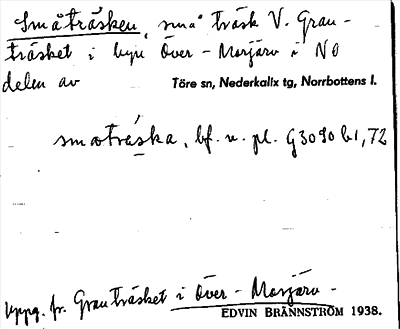 Småträsken, små träsk V. Gran-
träsket i byn Över-Morjärv i NO
delen av Töre sn, Nederkalix tg, Norrbottens l.
smotráska, bf. n. pl. G3090 b1,72
Uppg. fr. Granträsket i Över-Morjärv-
EDVIN BRÄNNSTRÖM 1938.